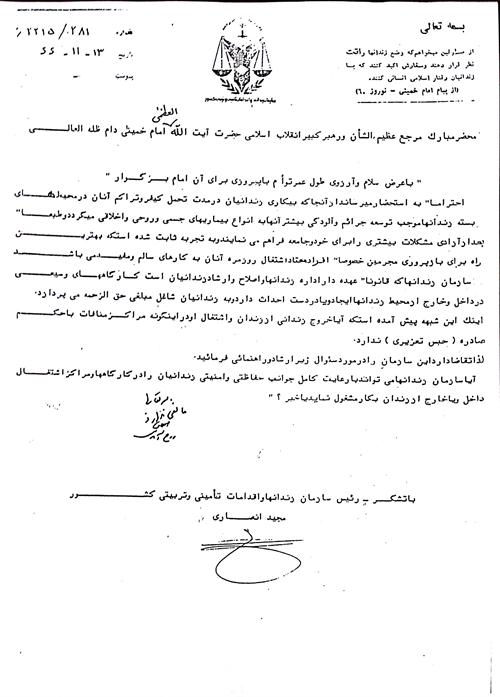 بسمه تعالی
شماره ۲۲۱۵/۰۲۸۱/
تاریخ ۱۳-۱۱-۶۶
پیوست
از مسئولین میخواهم که وضع زندانها را تحت
نظر قرار دهند و سفارش اکید کنند که با
زندانیان رفتار اسلامی انسانی کنند.
(از پیام امام خمینی - نوروز ۶۰)
محضر مبارک مرجع عظیم الشأن و رهبر کبیر انقلاب اسلامی حضرت آیت الله العظمی امام خمینی دام ظله العالی
"با عرض سلام و آرزوی طول عمر توأم با پیروزی برای آن امام بزرگوار"
احتراما" به استحضار میرساند از آنجا که بیکاری زندانیان در مدت تحمل کیفر و تراکم آنان در محیط‌های
بسته زندانها موجب توسعه جرائم و آلودگی بیشتر آنها به انواع بیماریهای جسمی و روحی و اخلاقی میگردد و طبعا"
بعد از آزادی مشکلات بیشتری را برای خود و جامعه فراهم می نمایند و به تجربه ثابت شده است که بهترین
راه برای بازپروری مجرمین خصوصا" افراد معتاد؛ اشتغال روزمره آنان به کارهای سالم و مفید می باشد
سازمان زندانها که قانونا" عهده دار اداره زندانها و اصلاح و ارشاد زندانیان است کارگاههای وسیعی
در داخل و خارج از محیط زندانها ایجاد و یا در دست احداث دارد و به زندانیان شاغل مبلغی حق الزحمه می پردازد.
اینک این شبهه پیش آمده است که آیا خروج زندانی از زندان و اشتغال او در اینگونه مراکز منافات با حکم
صادره (حبس تعزیری) ندارد.
لذا تقاضا دارد این سازمان را در مورد سئوال زیر ارشاد و راهنمائی فرمائید.
آیا سازمان زندانها می تواند با رعایت کامل جوانب حفاظتی و امنیتی زندانیان را در کارگاهها و مراکز اشتغال
داخل و یا خارج از زندان بکار مشغول نماید یا خیر؟"
مانعی ندارد
با تشکر - رئیس سازمان زندانها و اقدامات تأمینی و تربیتی کشور
مجید انصاری